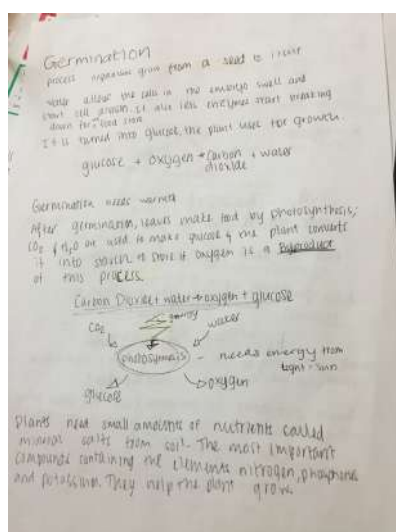 Germination
process organisms grow from a seed to
water allow the cells in the embryo swell and
start cell division. It also lets enzymes start breaking
down for food store
It is turned into glucose, the plant uses for growth.
glucose + oxygen → carbon + water
dioxide
Germination needs warmth
After germination, leaves make food by photosynthesis;
CO2 & H2O are used to make glucose & the plant converts
it into starch to store it oxygen is a Byproduct
of this process.
Carbon Dioxide + water → oxygen + glucose
energy
CO2 water
photosynthesis - needs energy from
light - sun
glucose oxygen
Plants need small amounts of nutrients called
mineral salts from soil. The most important
compounds containing the elements nitrogen, phosphorus
and potassium. They help the plant grow.